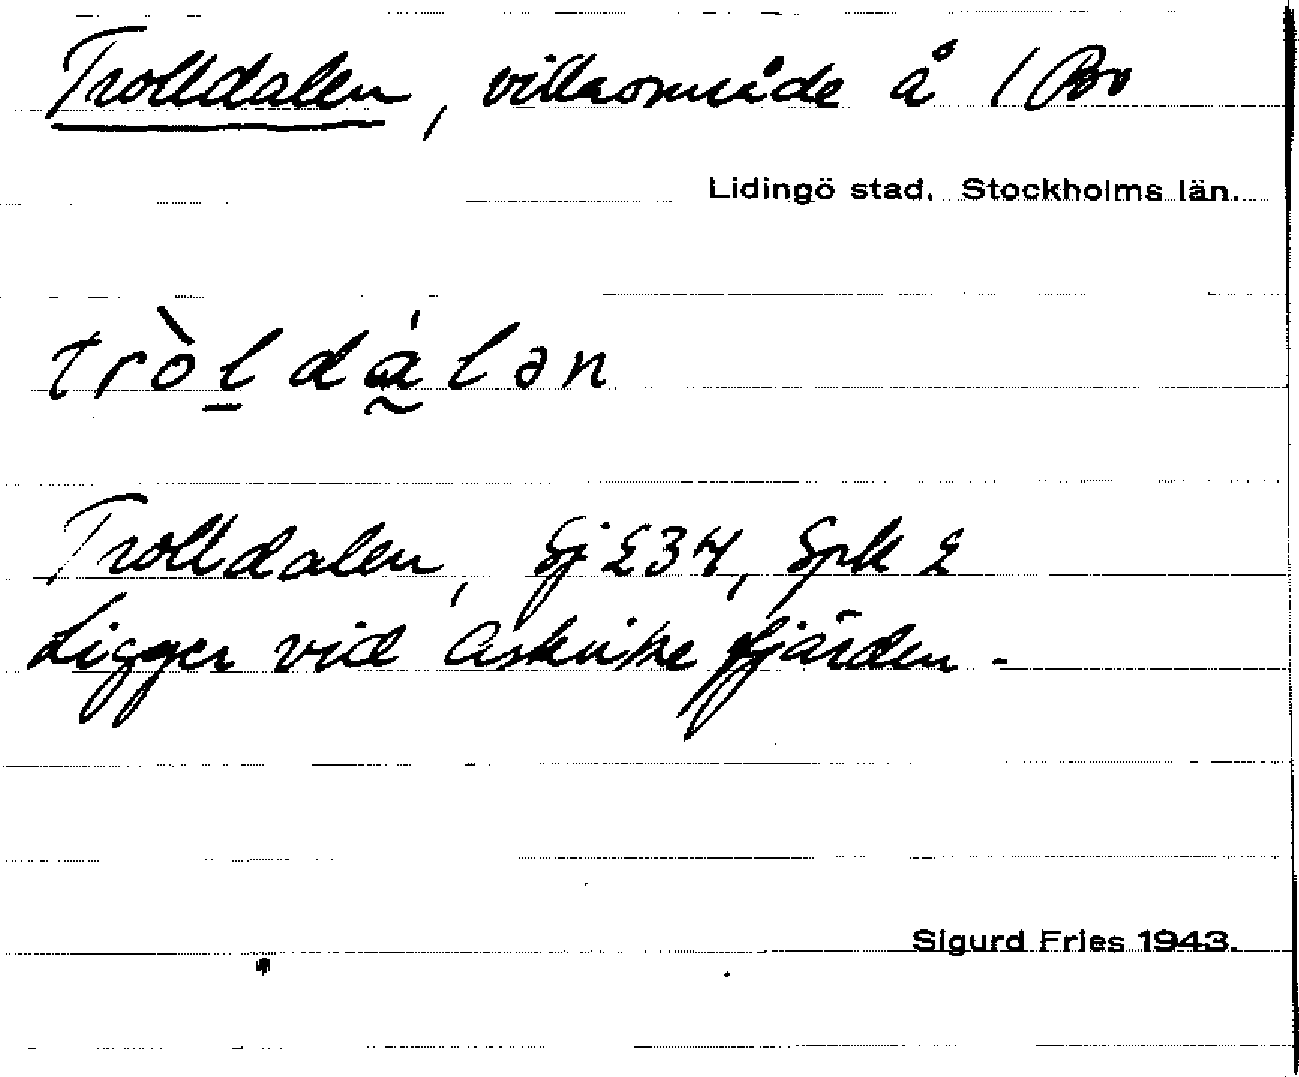 Trolldalen, villaområde å 1 Bo
Lidingö stad. Stockholms län.
tròldálən
Trolldalen, Gj 234, Spk 2
Ligger vid Askrike fjärden -
Sigurd Fries 1943.